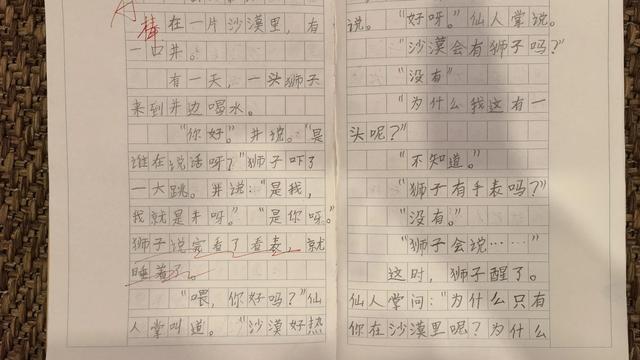 棒
在一片沙漠里，有
一口井。
有一天，一头狮子
来到井边喝水。
“你好。”井说。“是
谁在说话呀？”狮子吓了
一大跳。井说：“是我，
我就是井呀。”“是你呀。”
狮子说完看了看表，就
睡着了。
“喂，你好吗？”仙
人掌叫道。“沙漠好热
说。“好呀。”仙人掌说。
“沙漠会有狮子吗？”
“没有”
“为什么我这有一
头呢？”
“不知道。”
“狮子有手表吗？”
“没有。”
“狮子会说……”
这时，狮子醒了。
仙人掌问：“为什么只有
你在沙漠里呢？为什么